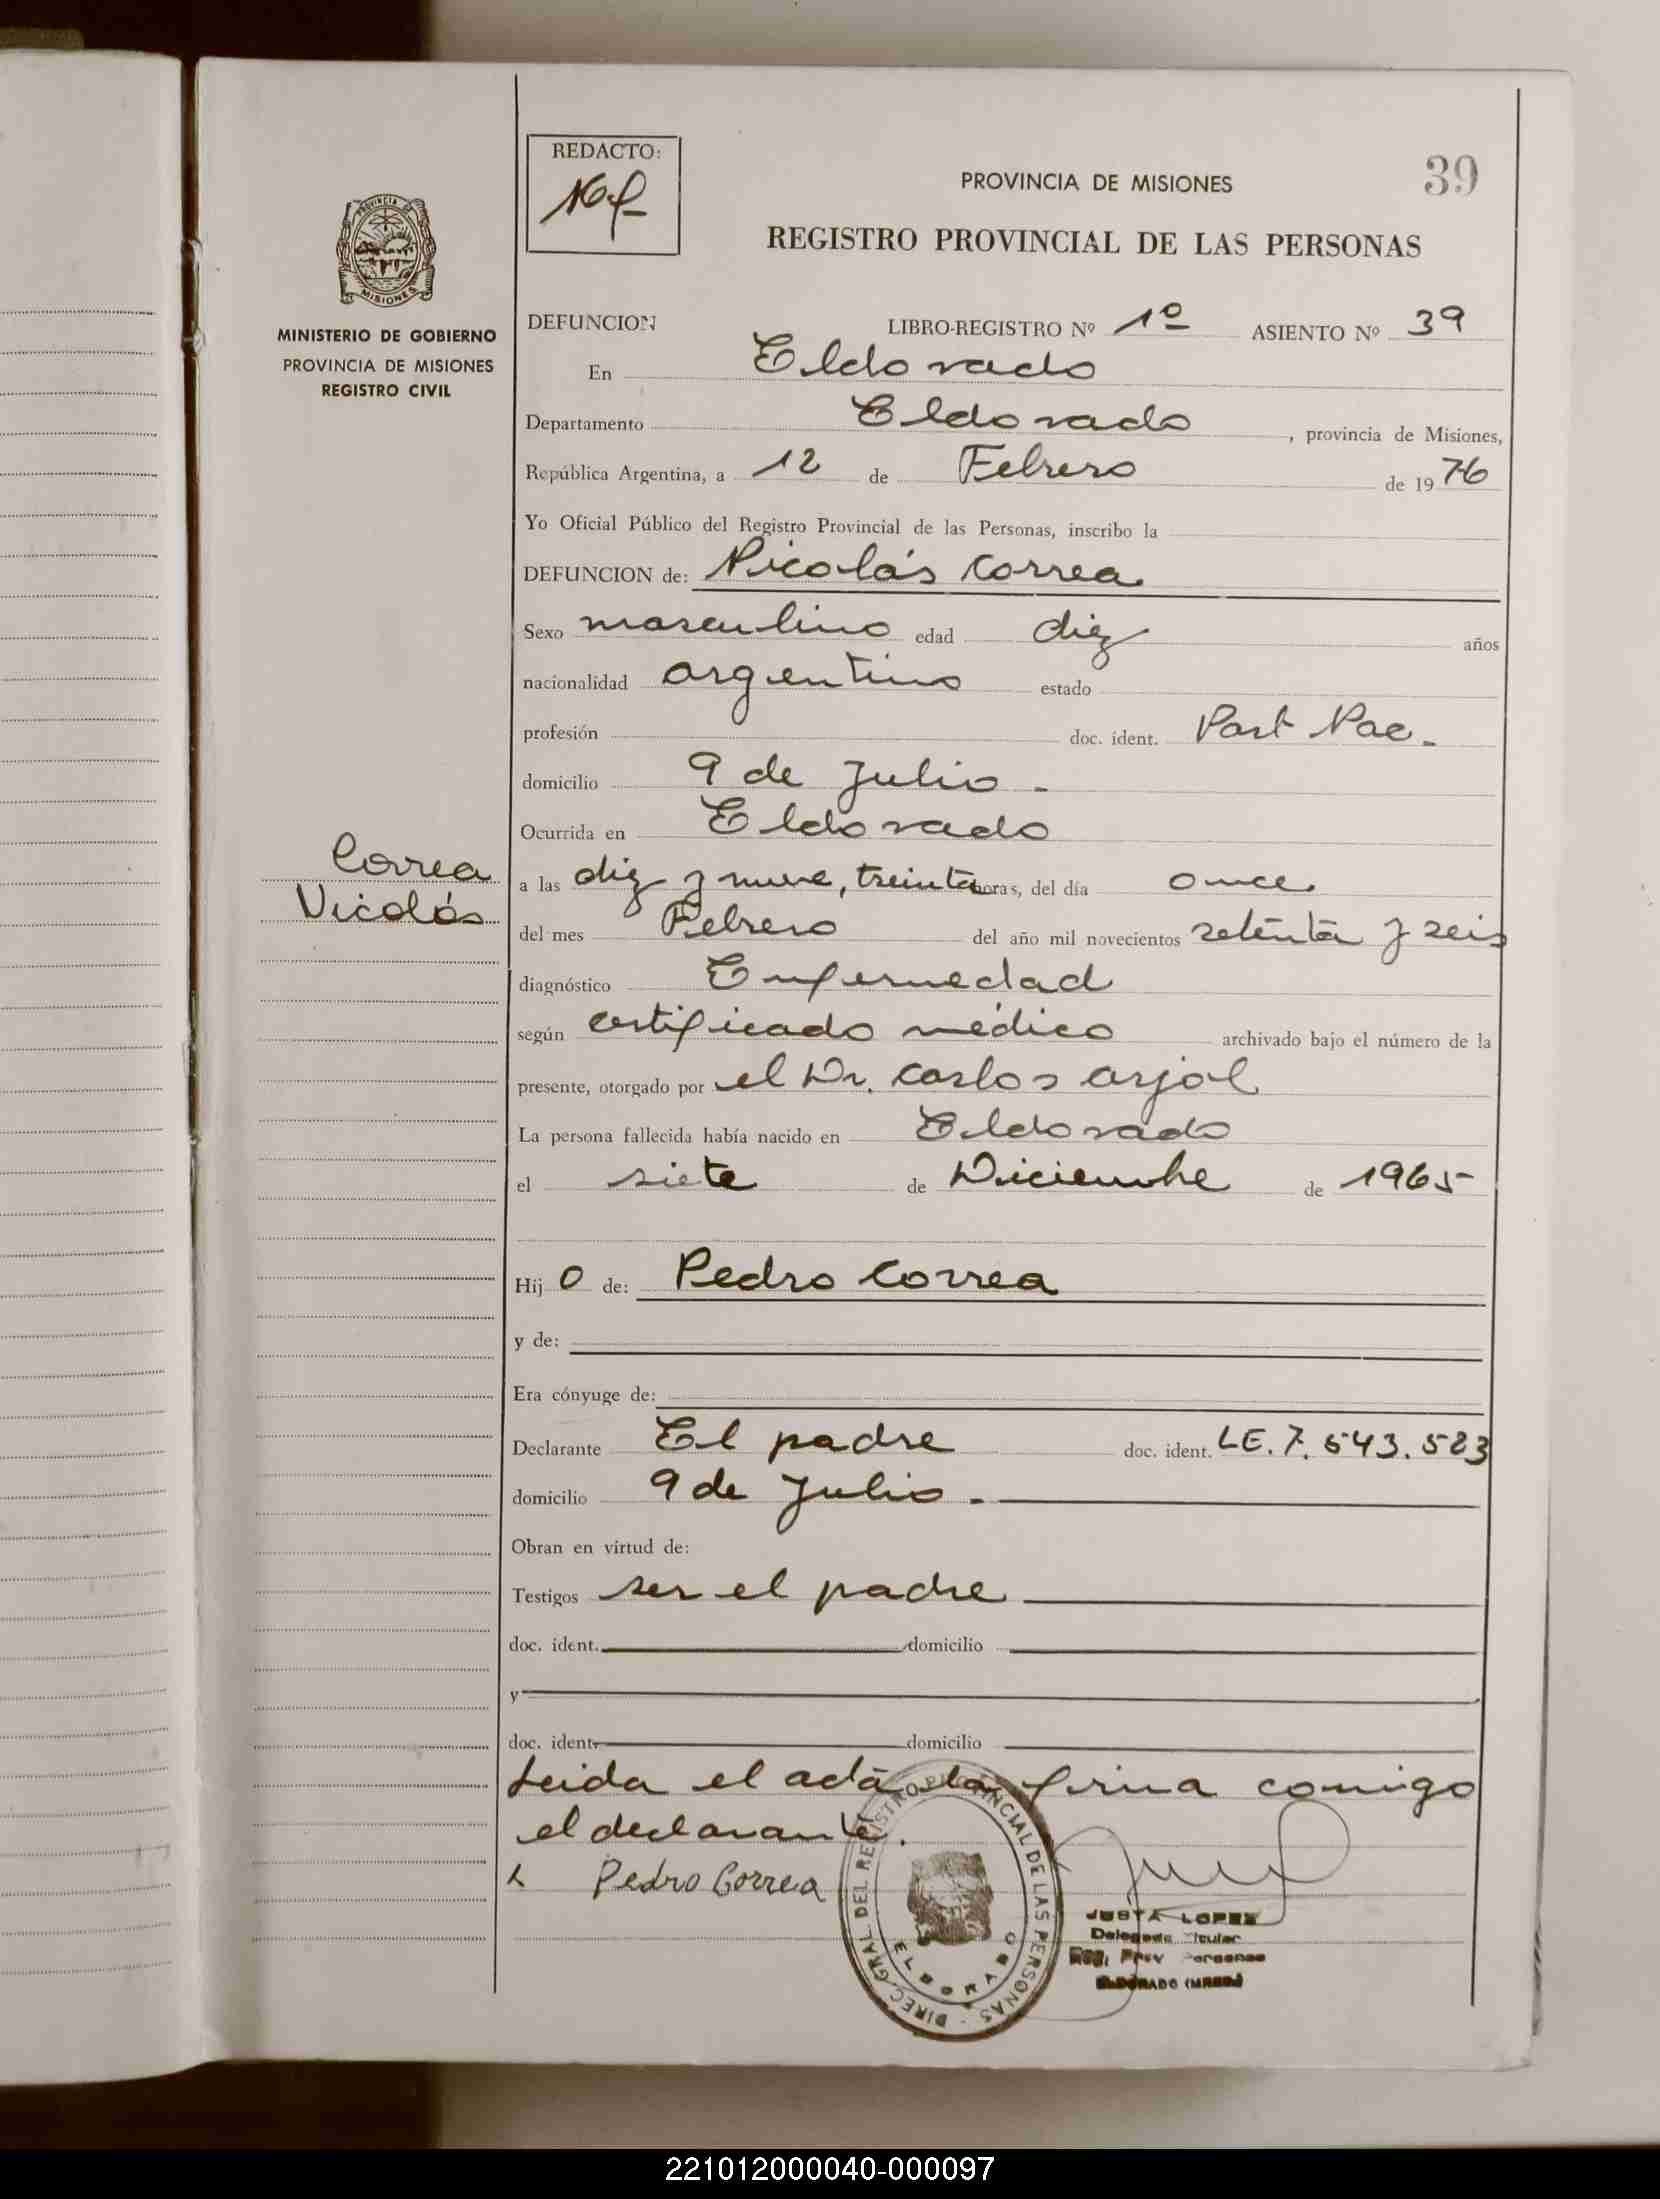 REDACTO:
PROVINCIA DE MISIONES
39
REGISTRO PROVINCIAL DE LAS PERSONAS
PROVINCIA DE
MISIONES
MINISTERIO DE GOBIERNO
PROVINCIA DE MISIONES
REGISTRO CIVIL
DEFUNCION LIBRO-REGISTRO Nº 1º ASIENTO Nº 39
En Eldorado
Departamento Eldorado, provincia de Misiones,
República Argentina, a 12 de Febrero de 1976
Yo Oficial Público del Registro Provincial de las Personas, inscribo la
DEFUNCION de: Nicolás Correa
Sexo masculino edad diez años
nacionalidad argentino estado
profesión doc. ident. Part Nac.-
domicilio 9 de Julio-
Ocurrida en Eldorado
Correa
Nicolás
a las diez y nueve, treinta horas, del día once
del mes Febrero del año mil novecientos setenta y seis
diagnóstico Enfermedad
según certificado médico archivado bajo el número de la
presente, otorgado por el Dr. Carlos Arjol
La persona fallecida había nacido en Eldorado
el siete de Diciembre de 1965
Hijo de: Pedro Correa
y de:
Era cónyuge de:
Declarante El padre doc. ident. LE. 7.543.523
domicilio 9 de Julio.-
Obran en virtud de:
Testigos ser el padre
doc. ident. domicilio
y
doc. ident. domicilio
Leida el acta la firma comigo
el declarante.
x Pedro Correa
DIREC. GRAL. DEL REGISTRO PROVINCIAL DE LAS PERSONAS -
ELDORADO
JUSTA LOPEZ
Delegada Titular
Reg. Prov Personas
ELDORADO (MNES)
221012000040-000097